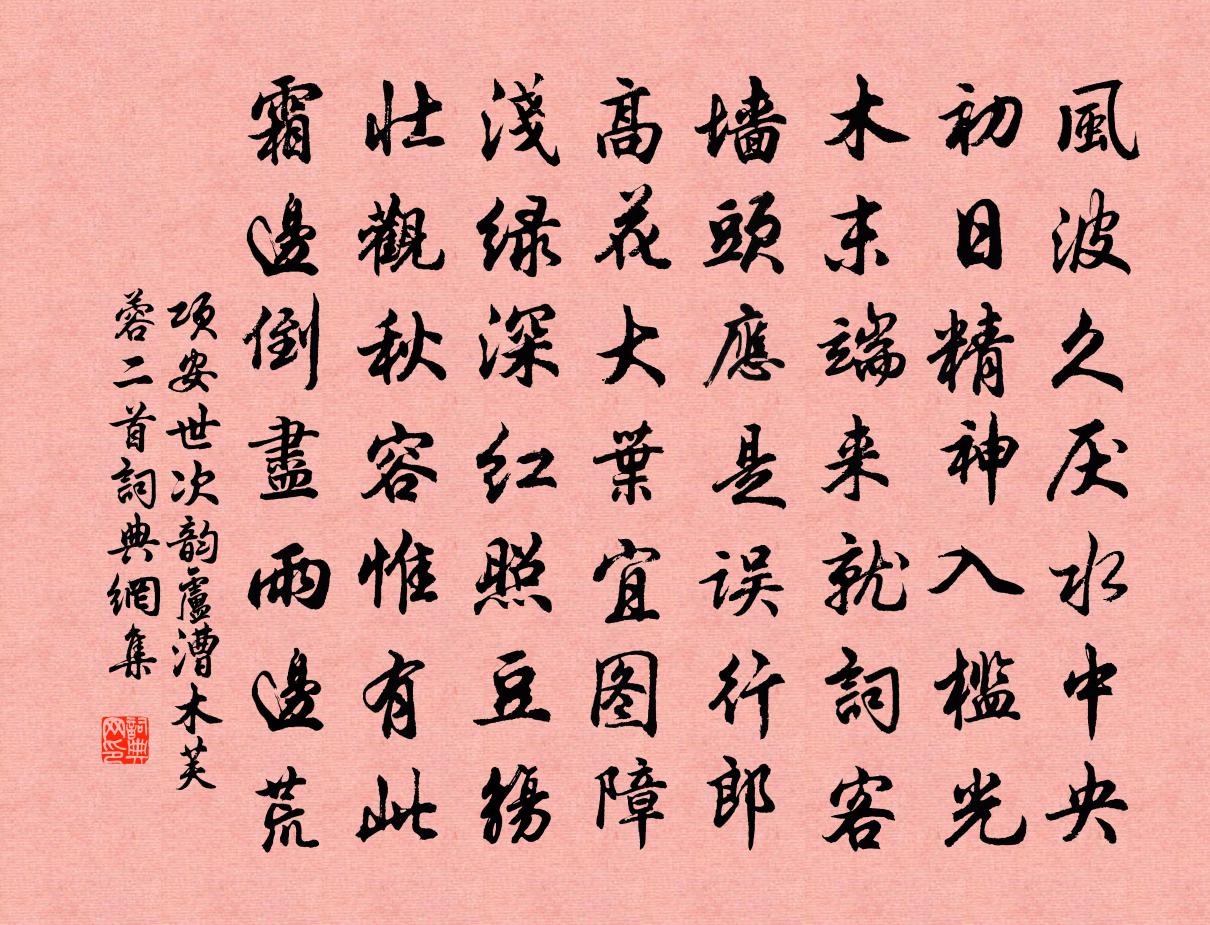 風波久厌水中央
初日精神入槛光
木末端来就詞客
墙頭應是误行郎
高花大葉宜图障
淺绿深红照豆觴
壮觀秋容惟有此
霜邊倒盡雨邊荒
项安世次韵盧漕木芙
蓉二首詞典網集
詞典
网印